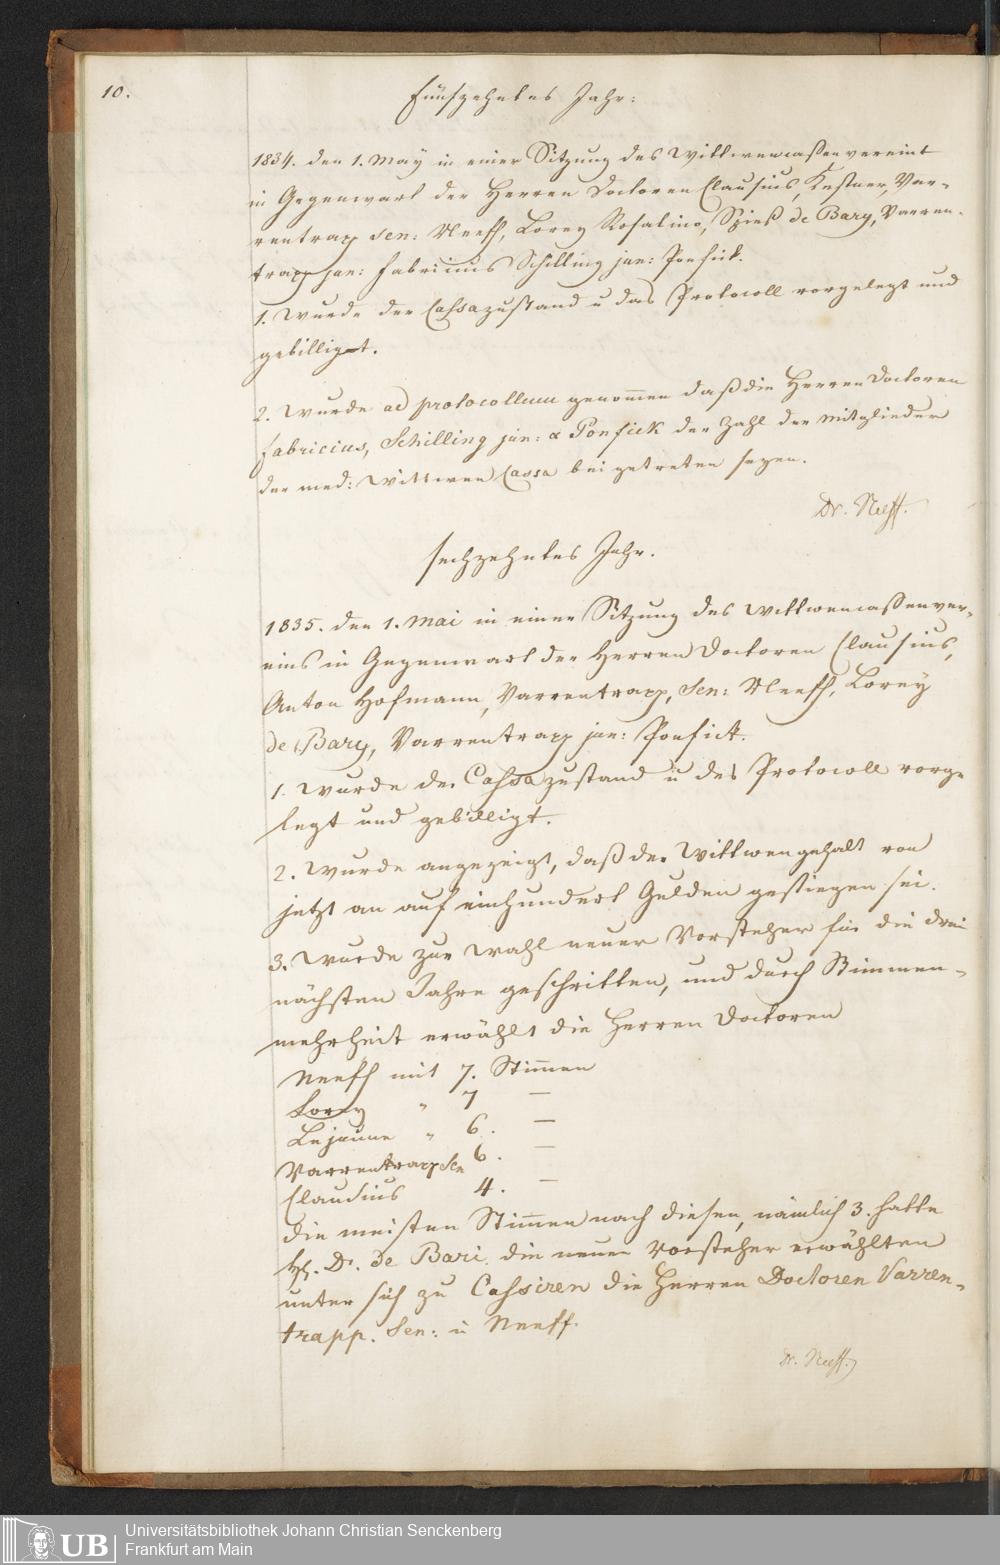 10.
Fünfzehntes Jahr:
1834. den 1. May in einer Sitzung des Wittwencaßenvereins
in Gegenwart der Herren Doctoren Clausius, Kestner, Var-
rentrapp sen: Neeff, Lorey Rosalino, Spieß de Bary, Varren-
trapp jun: Fabricius Schilling jun: Ponfick.
1. Wurde der Cassazustand u das Protocoll vorgelegt und
gebilligt.
2. Wurde ad protocollum genom̄en daß die Herren Doctoren
Fabricius, Schilling jun: & Ponfick der Zahl der Mitglieder
der med: Wittwen Cassa beigetreten seyen.
Dr. Neeff.
Sechzehntes Jahr.
1835. den 1. Mai in einer Sitzung des Wittwencassenver-
eins in Gegenwart der Herren Doctoren Clausius,
Anton Hofmann, Varrentrapp, Sen: Neeff, Lorey
de Bary, Varrentrapp jun: Ponfick.
1. Wurde der Cassazustand u das Protocoll vorge
legt und gebilligt.
2. Wurde angezeigt, daß der Wittwengehalt von
jetzt an auf einhundert Gulden gestiegen sei.
3. Wurde zur Wahl neuer Vorsteher für die drei
nächsten Jahre geschritten, und durch Stimmen-
mehrheit erwählt die Herren Doctoren
Neeff mit 7. Stim̄en
Lorey " 7 —
Lejeune " 6. —
Varrentrapp Sen 6. —
Clausius 4. —
die meisten Stim̄en nach diesen, nämlich 3. hatte
H. Dr. de Bari. die neuen Vorsteher erwählten
unter sich zu Cassiren die Herren Doctoren Varren-
trapp. Sen: u Neeff.
Dr. Neeff.
UB
Universitätsbibliothek Johann Christian Senckenberg
Frankfurt am Main